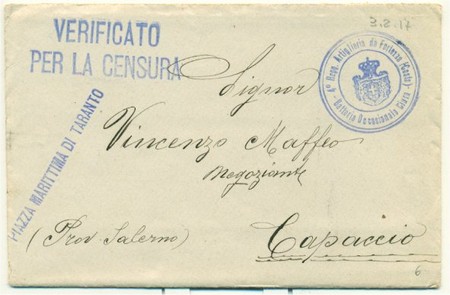 3.2.17
VERIFICATO
PER LA CENSURA
4° Regg. Artiglieria da Fortezza (Costa)
Batteria Occasionale
Signor
Vincenzo Maffeo
negoziante
PIAZZA MARITTIMA DI TARANTO
(Prov Salerno)
Capaccio
6